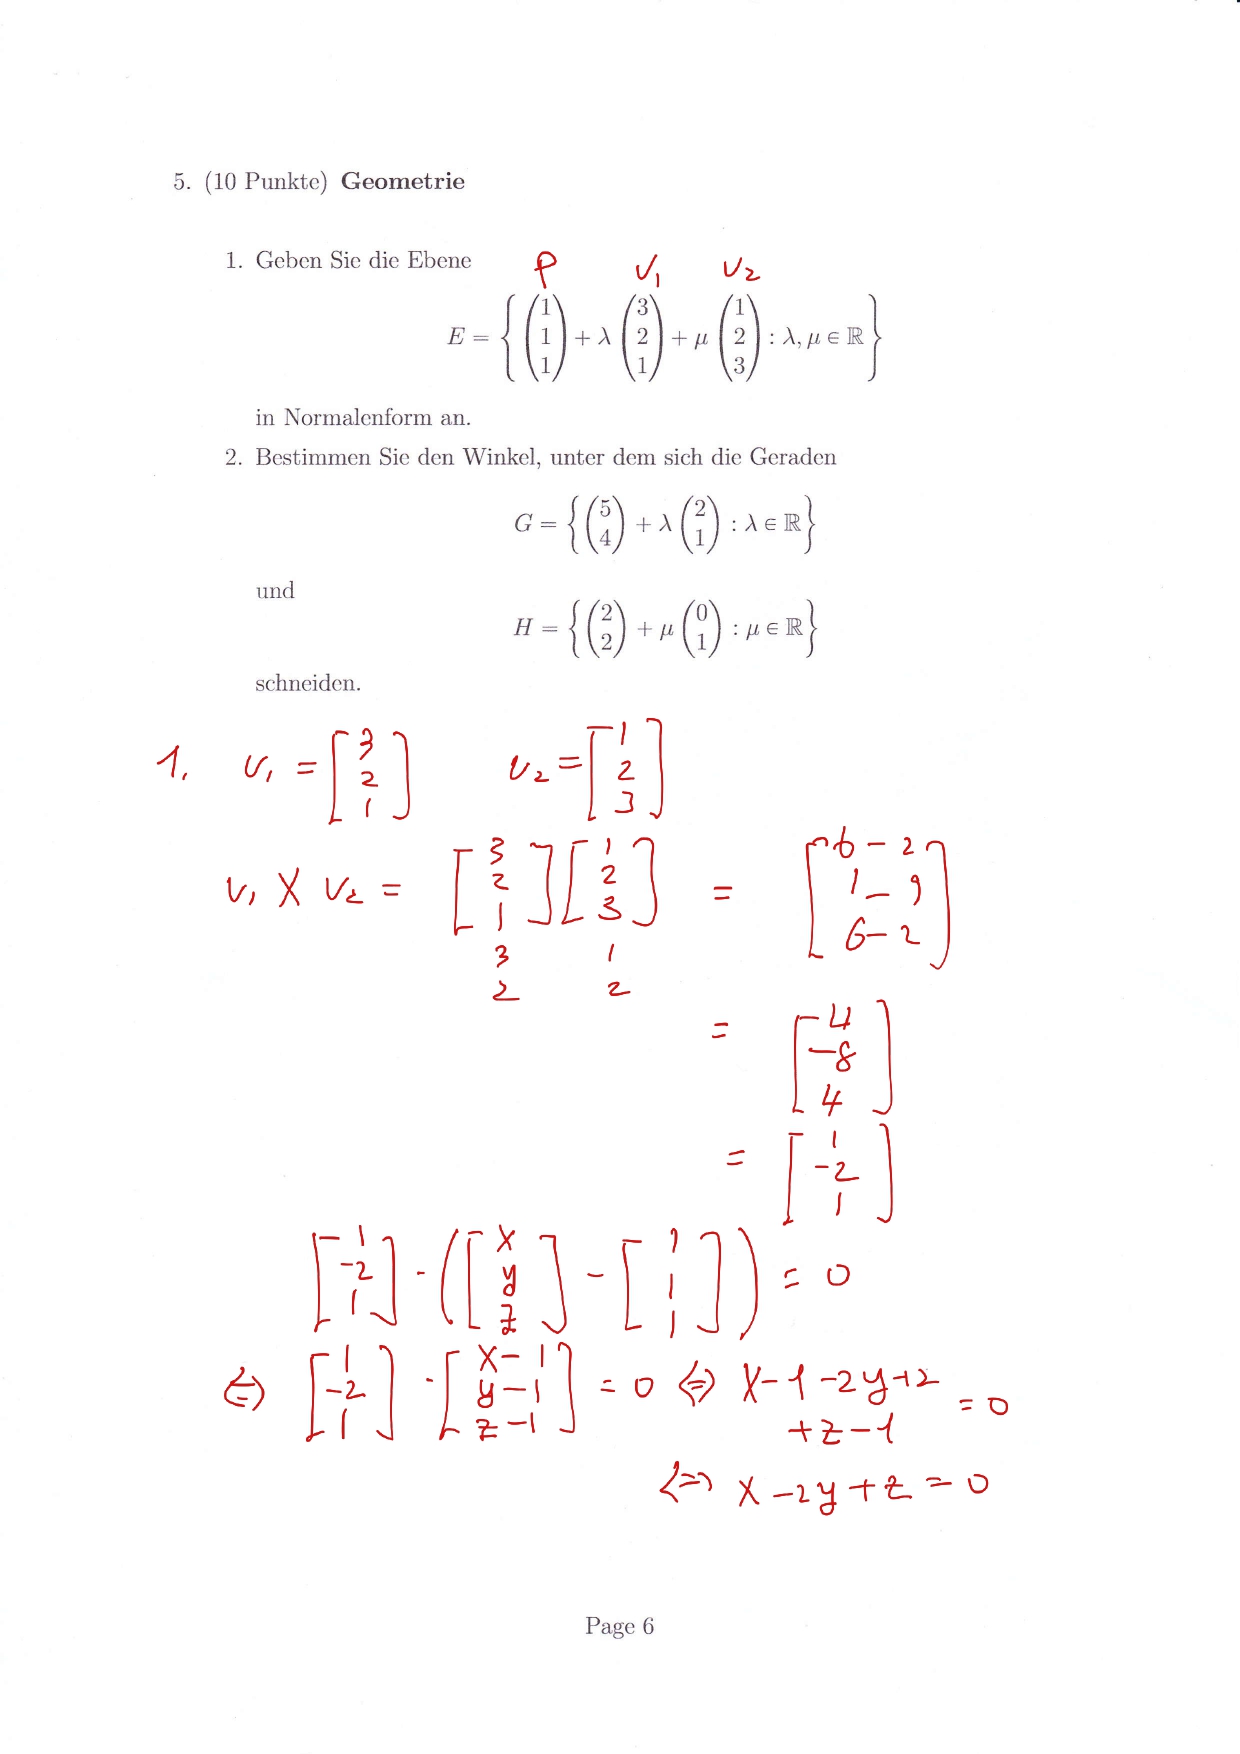 5. (10 Punkte) Geometrie
1. Geben Sie die Ebene
P v₁ v₂
E = { (1 1 1) + λ (3 2 1) + μ (1 2 3) : λ, μ ∈ ℝ }
in Normalenform an.
2. Bestimmen Sie den Winkel, unter dem sich die Geraden
G = { (5 4) + λ (2 1) : λ ∈ ℝ }
und
H = { (2 2) + μ (0 1) : μ ∈ ℝ }
schneiden.
1. v₁ = [3 2 1] v₂ = [1 2 3]
v₁ X v₂ = [3 2 1] [1 2 3] = [6-2 1-9 6-2]
3 1
2 2
= [4 -8 4]
= [1 -2 1]
[1 -2 1] · ([x y z] - [1 1 1]) = 0
⇔ [1 -2 1] · [x-1 y-1 z-1] = 0 ⇔ x-1-2y+2
+z-1 = 0
⇔ x-2y+z = 0
Page 6